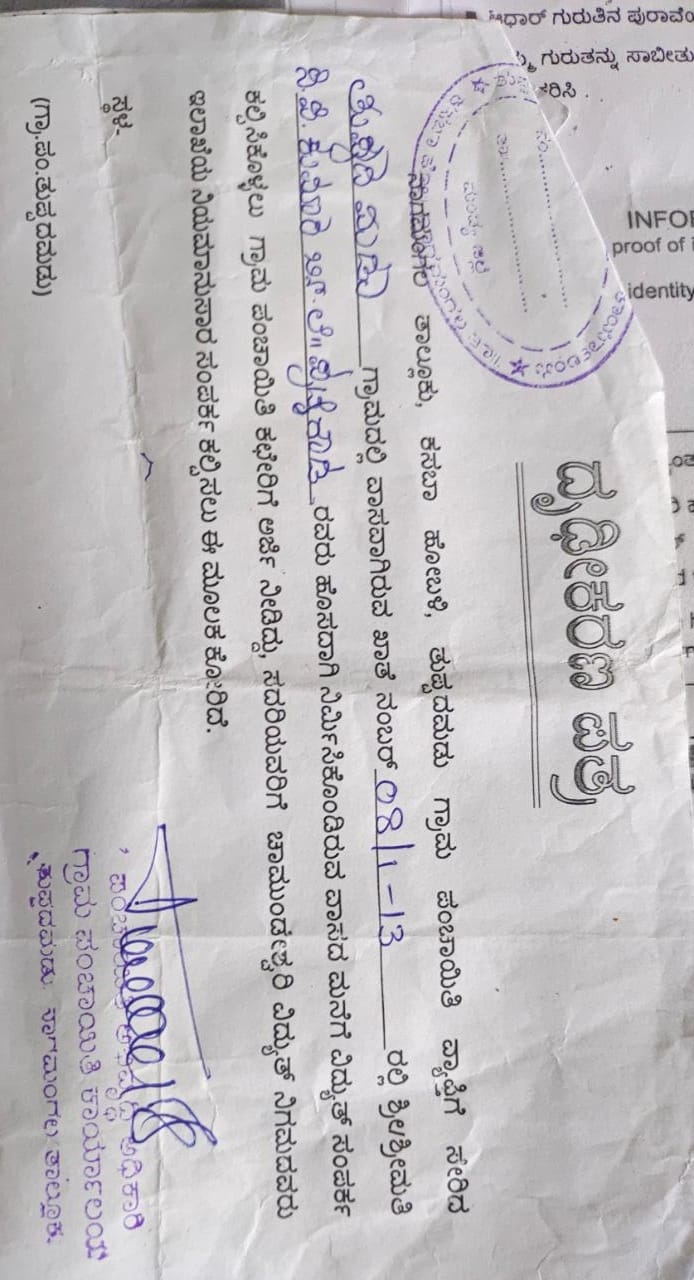 ಆಧಾರ್ ಗುರುತಿನ ಪುರಾವೆಯ
ಗುರುತನ್ನು ಸಾಬೀತು
ಕರಿಸಿ .
INFOR
proof of i
identity
ದೃಢೀಕರಣ ಪತ್ರ
ನಾಗಮಂಗಲ ತಾಲ್ಲೂಕು, ಕಸಬಾ ಹೋಬಳಿ, ತುಪ್ಪದಮಡು ಗ್ರಾಮ ಪಂಚಾಯಿತಿ ವ್ಯಾಪ್ತಿಗೆ ಸೇರಿದ
ತುಪ್ಪದಮಡು ಗ್ರಾಮದಲ್ಲಿ ವಾಸವಾಗಿರುವ ಖಾತೆ ನಂಬರ್ 08/1-13 ರಲ್ಲಿ ಶ್ರೀ/ಶ್ರೀಮತಿ
ಕುಮಾರಿ ಬಿನ್ ಲೇ|| ರವರು ಹೊಸದಾಗಿ ನಿರ್ಮಿಸಿಕೊಂಡಿರುವ ವಾಸದ ಮನೆಗೆ ವಿದ್ಯುತ್ ಸಂಪರ್ಕ
ಕಲ್ಪಿಸಿಕೊಳ್ಳಲು ಗ್ರಾಮ ಪಂಚಾಯಿತಿ ಕಛೇರಿಗೆ ಅರ್ಜಿ ನೀಡಿದ್ದು, ಸದರಿಯವರಿಗೆ ಚಾಮುಂಡೇಶ್ವರಿ ವಿದ್ಯುತ್ ನಿಗಮದವರು
ಇಲಾಖೆಯ ನಿಯಮಾನುಸಾರ ಸಂಪರ್ಕ ಕಲ್ಪಿಸಲು ಈ ಮೂಲಕ ಕೋರಿದೆ.
ಸ್ಥಳ-
(ಗ್ರಾ.ಪಂ.ತುಪ್ಪದಮಡು)
ಪಂಚಾಯಿತಿ ಅಭಿವೃದ್ಧಿ ಅಧಿಕಾರಿ
ಗ್ರಾಮ ಪಂಚಾಯಿತಿ ಕಾರ್ಯಾಲಯ
ತುಪ್ಪದಮಡು ನಾಗಮಂಗಲ ತಾಲ್ಲೂಕು